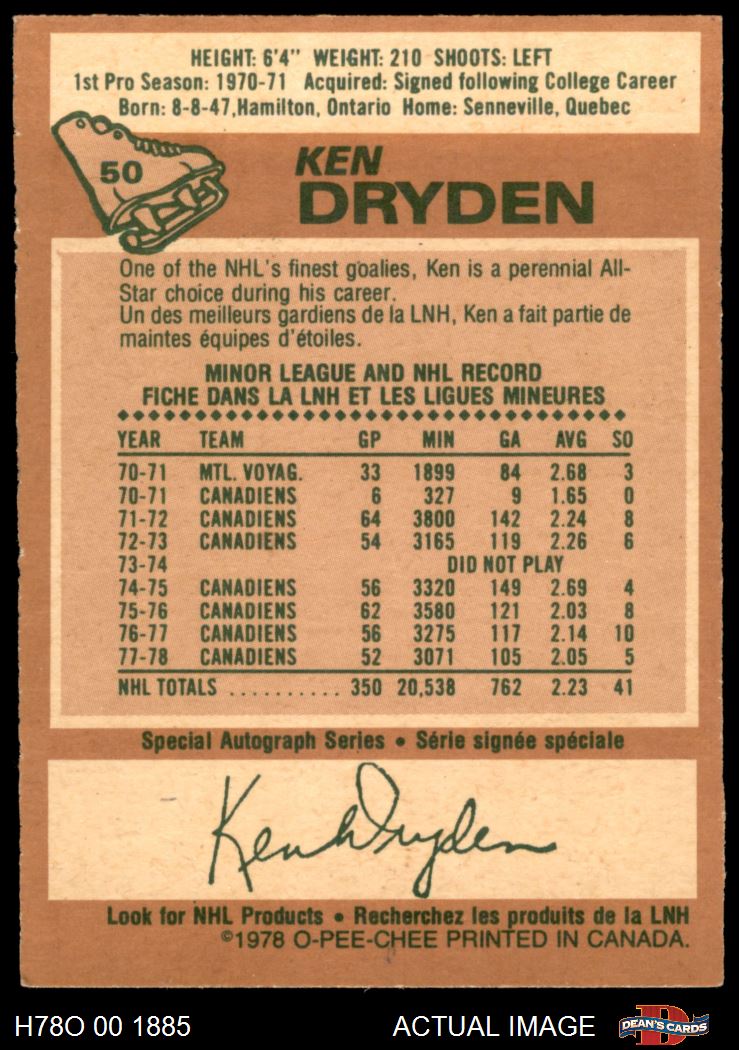 HEIGHT: 6'4" WEIGHT: 210 SHOOTS: LEFT
1st Pro Season: 1970-71 Acquired: Signed following College Career
Born: 8-8-47, Hamilton, Ontario Home: Senneville, Quebec
50
KEN
DRYDEN
One of the NHL's finest goalies, Ken is a perennial All-
Star choice during his career.
Un des meilleurs gardiens de la LNH, Ken a fait partie de
maintes équipes d'étoiles.
MINOR LEAGUE AND NHL RECORD
FICHE DANS LA LNH ET LES LIGUES MINEURES
YEAR TEAM GP MIN GA AVG SO
70-71 MTL. VOYAG. 33 1899 84 2.68 3
70-71 CANADIENS 6 327 9 1.65 0
71-72 CANADIENS 64 3800 142 2.24 8
72-73 CANADIENS 54 3165 119 2.26 6
73-74 DID NOT PLAY
74-75 CANADIENS 56 3320 149 2.69 4
75-76 CANADIENS 62 3580 121 2.03 8
76-77 CANADIENS 56 3275 117 2.14 10
77-78 CANADIENS 52 3071 105 2.05 5
NHL TOTALS .......... 350 20,538 762 2.23 41
Special Autograph Series • Série signée spéciale
Ken Dryden
Look for NHL Products • Recherchez les produits de la LNH
©1978 O-PEE-CHEE PRINTED IN CANADA.
H78O 00 1885 ACTUAL IMAGE D DEAN'S CARDS